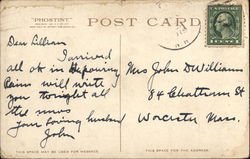 "PHOSTINT"
POST CARD
Dear Lillian
I arrived
all ok in the pouring
Rain will write
you tonight all
the news
Your Loving husband
John
Mrs John D Williams
84 Chatham St
Worcester Mass.
THIS SPACE MAY BE USED FOR MESSAGE.
THIS SPACE FOR THE ADDRESS.